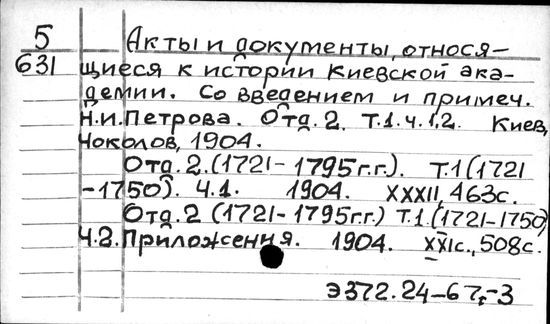 5 Акты и документы, относя-
631 щиеся к истории Киевской ака-
демии. Со введением и примеч.
Н.И.Петрова. Отд.2. Т.1.ч.1,2. Киев,
Чоколов, 1904.
Отд.2.(1721-1795г.г.). Т.1(1721
-1750). Ч.1. 1904. XXXII, 463с.
Отд.2 (1721-1795г.г.) Т.1.(1721-1750)
Ч.2. Приложения. 1904. XXIс., 508с.
Э372.24-67,-3